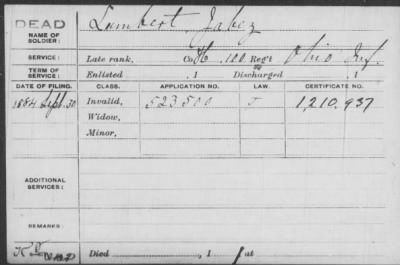 DEAD
NAME OF
SOLDIER:
Lambert, Jabez
SERVICE:
Late rank, Co. H, 100 Reg't Ohio Inf.
TERM OF
SERVICE:
Enlisted , 1 Discharged , 1
DATE OF FILING. CLASS. APPLICATION NO. LAW. CERTIFICATE NO.
1884 Sept. 30 Invalid, 523500 1,210,937
Widow,
Minor,
ADDITIONAL
SERVICES:
REMARKS:
Died , 1 at